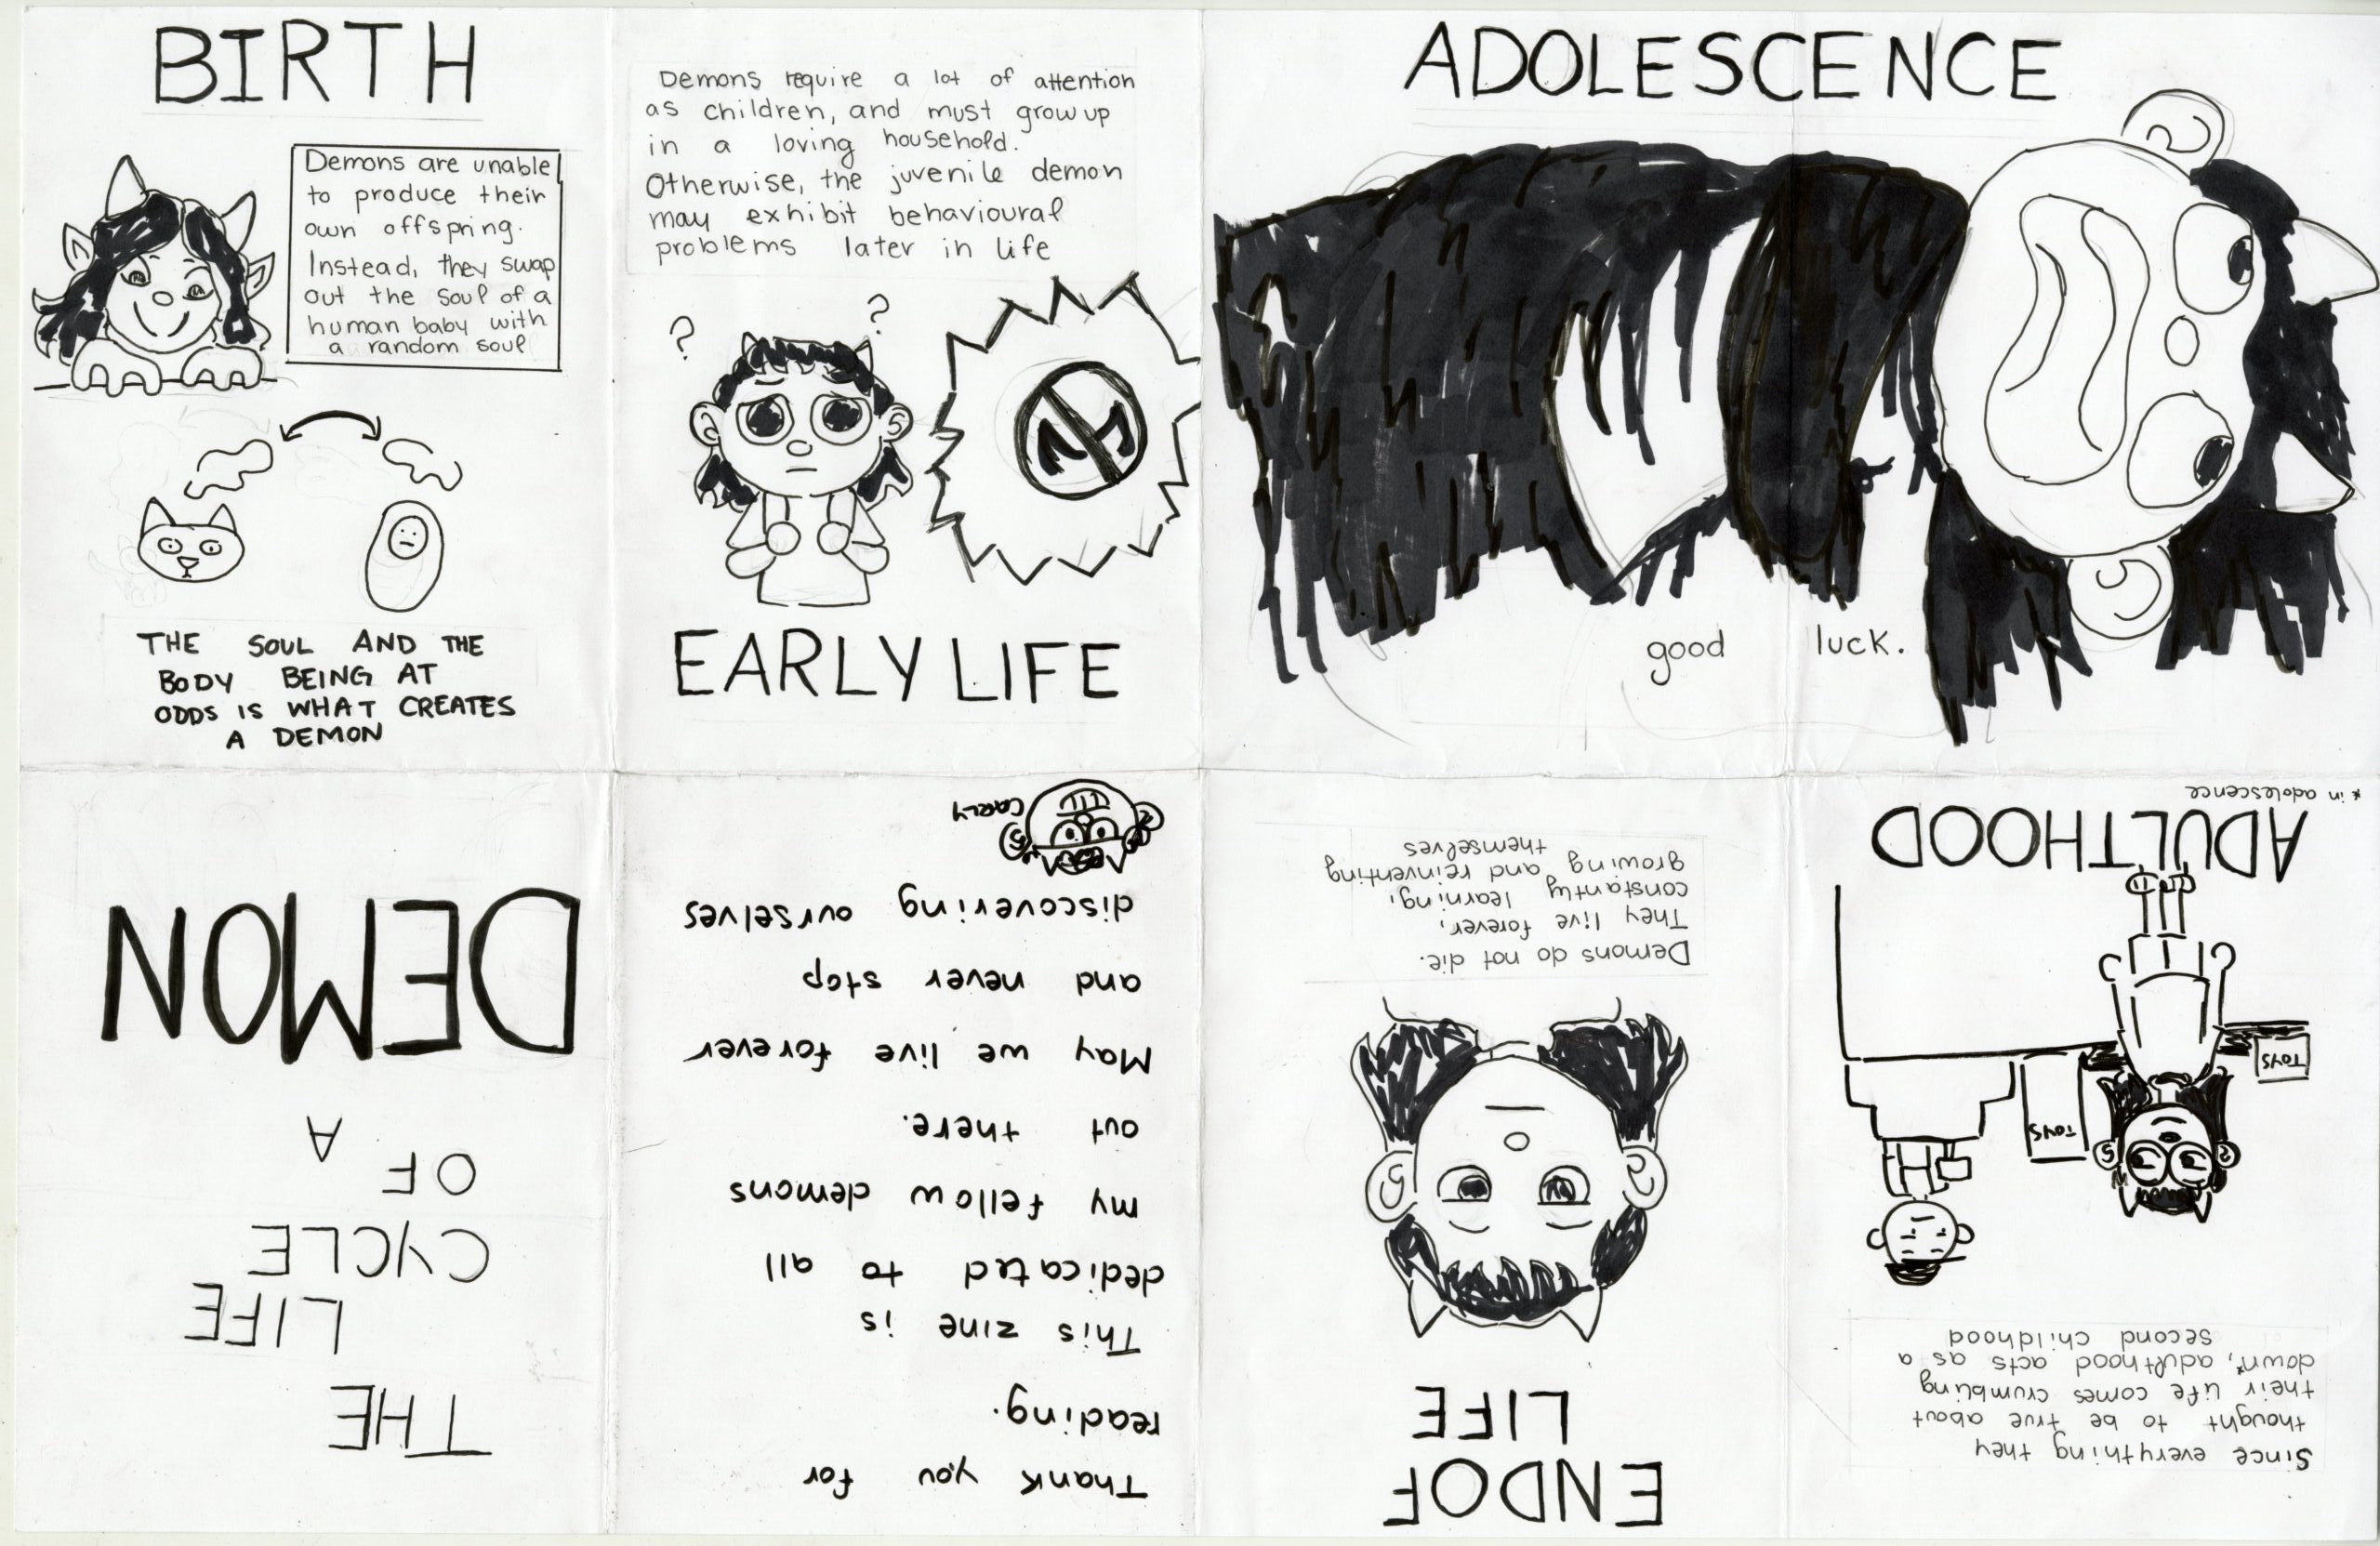 THE
LIFE
CYCLE
OF
A
DEMON
BIRTH
Demons are unable
to produce their
own offspring.
Instead, they swap
out the soul of a
human baby with
a random soul
THE SOUL AND THE
BODY BEING AT
ODDS IS WHAT CREATES
A DEMON
Demons require a lot of attention
as children, and must grow up
in a loving household.
Otherwise, the juvenile demon
may exhibit behavioural
problems later in life
? ?
EARLY LIFE
ADOLESCENCE
good luck.
Since everything they
thought to be true about
their life comes crumbling
down*, adulthood acts as a
second childhood
TOYS
TOYS
ADULTHOOD
* in adolescence
END OF
LIFE
Demons do not die.
They live forever,
constantly learning,
growing and reinventing
themselves
Thank you for
reading.
This zine is
dedicated to all
my fellow demons
out there.
May we live forever
and never stop
discovering ourselves
CARLY